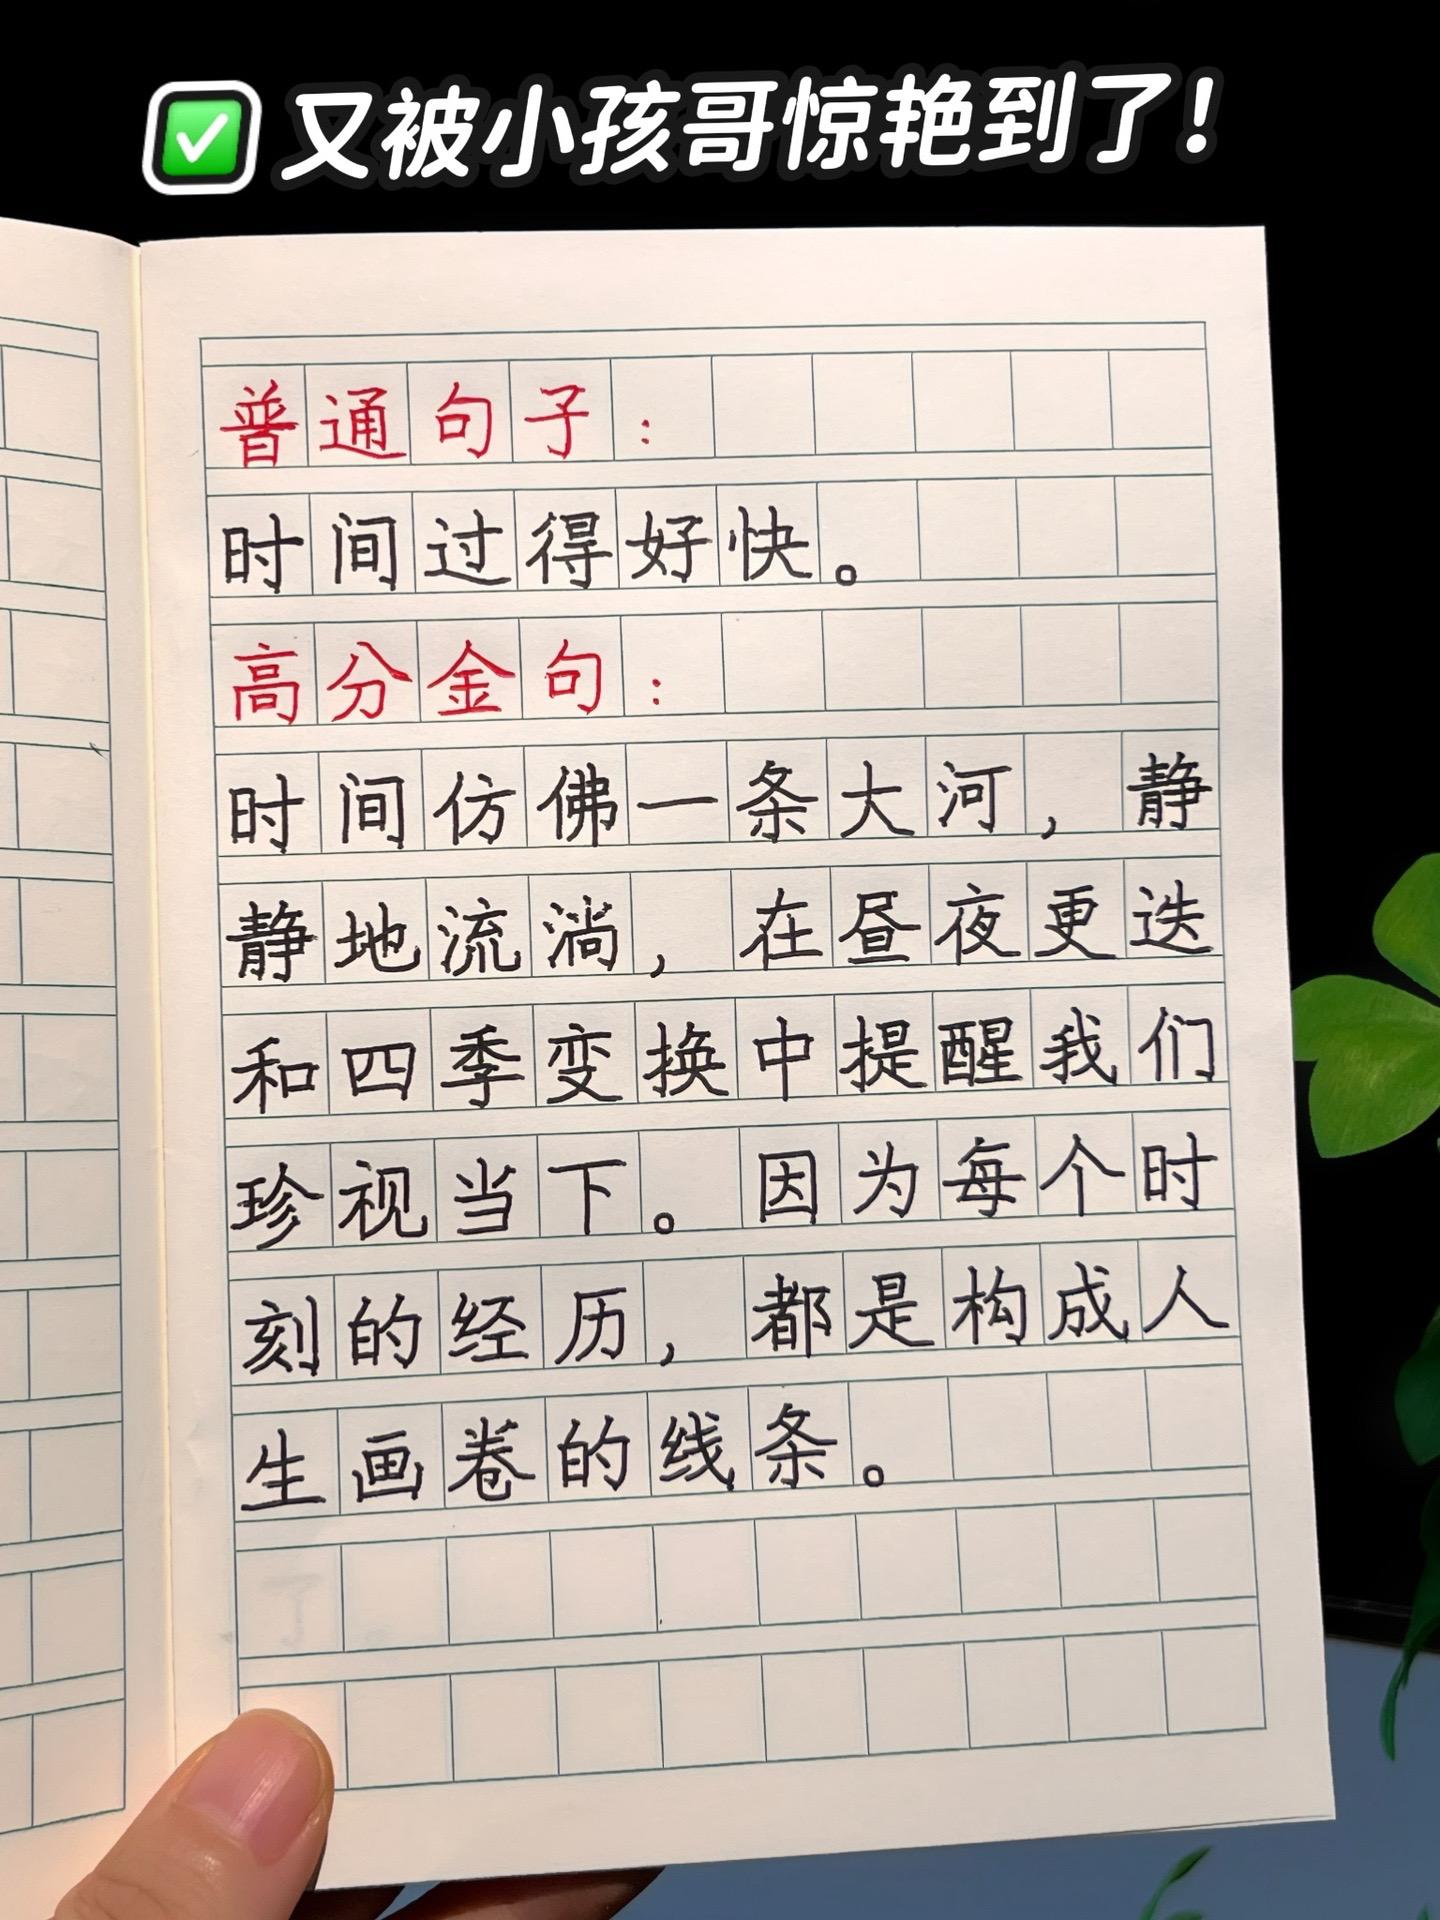 ✅又被小孩哥惊艳到了!
普通句子：
时间过得好快。
高分金句：
时间仿佛一条大河，静
静地流淌，在昼夜更迭
和四季变换中提醒我们
珍视当下。因为每个时
刻的经历，都是构成人
生画卷的线条。